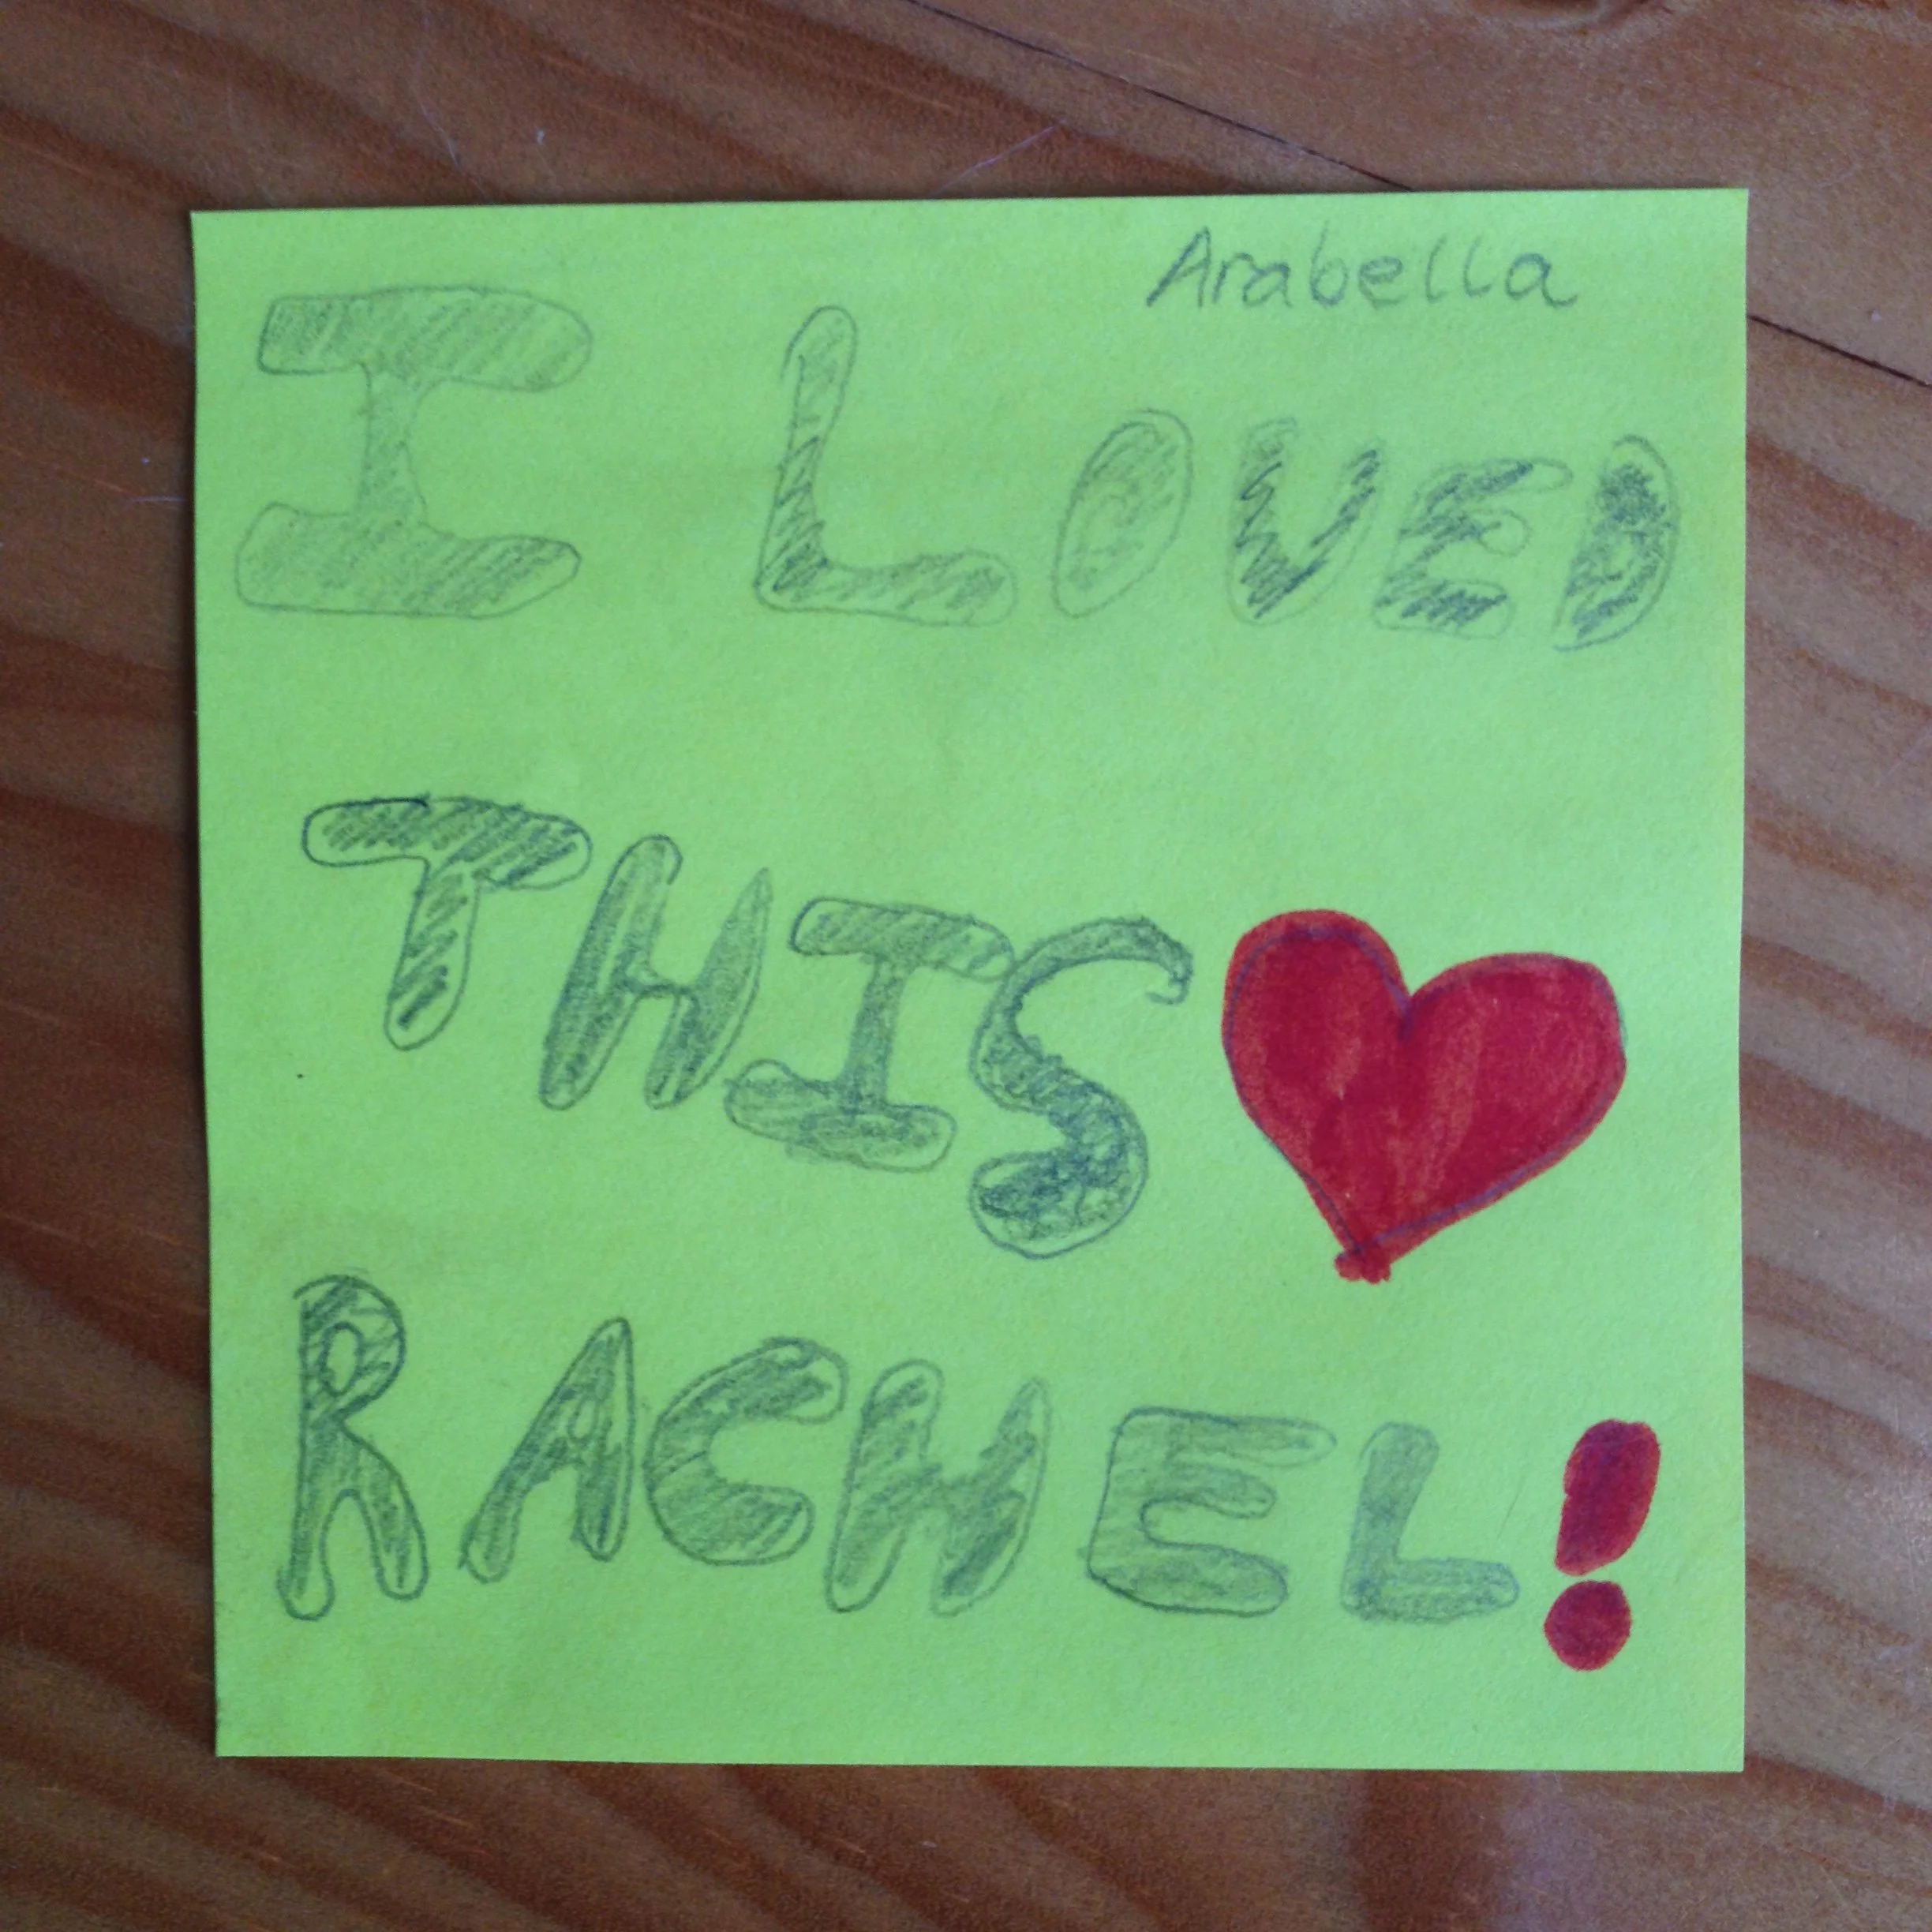 Arabella
I LOVED
THIS
RACHEL!